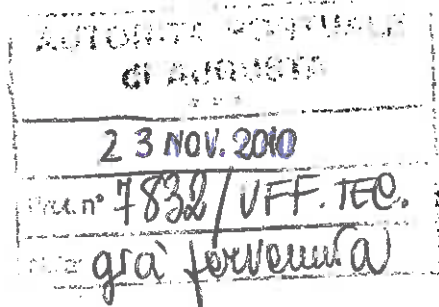 AUTORITÀ PORTUALE
di AUGUSTA
23 NOV. 2010
n° 7832/UFF. TEC.
già pervenuta